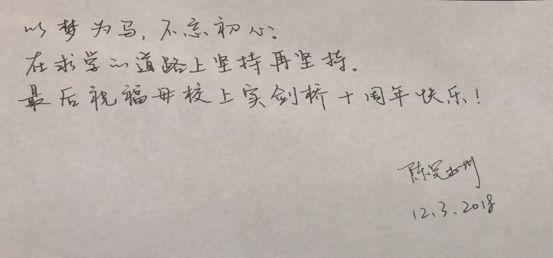 以梦为马，不忘初心。
在求学心道路上坚持再坚持。
最后祝福母校上实剑桥十周年快乐！
陈
12.3.2018